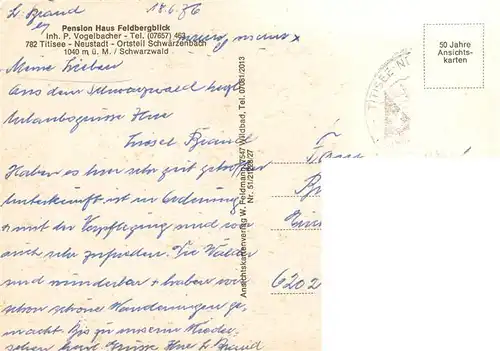 L. Brand 18.6.86
Pension Haus Feldbergblick
Inh. P. Vogelbacher - Tel. (07657) 463
782 Titisee - Neustadt - Ortsteil Schwärzenbach
1040 m ü. M. / Schwarzwald
Meine Lieben
Aus dem Schwarzwald herzl.
Urlaubsgrüsse Ihre
Liesel Brand
Haben es hier sehr gut getroffen
Unterkunft ist in Ordnung
mit der Verpflegung sind wir
auch sehr zufrieden. Die Wälder
sind wunderbar + haben wir
schon schöne Wanderungen ge-
macht. Bis zu unserm Wieder-
sehen herzl. Grüsse Ihre L. Brand
Ansichtskartenverlag W. Feldmann, 7547 Wildbad, Tel. 07081/2013
50 Jahre
Ansichts-
karten
TITISEE-N
6202